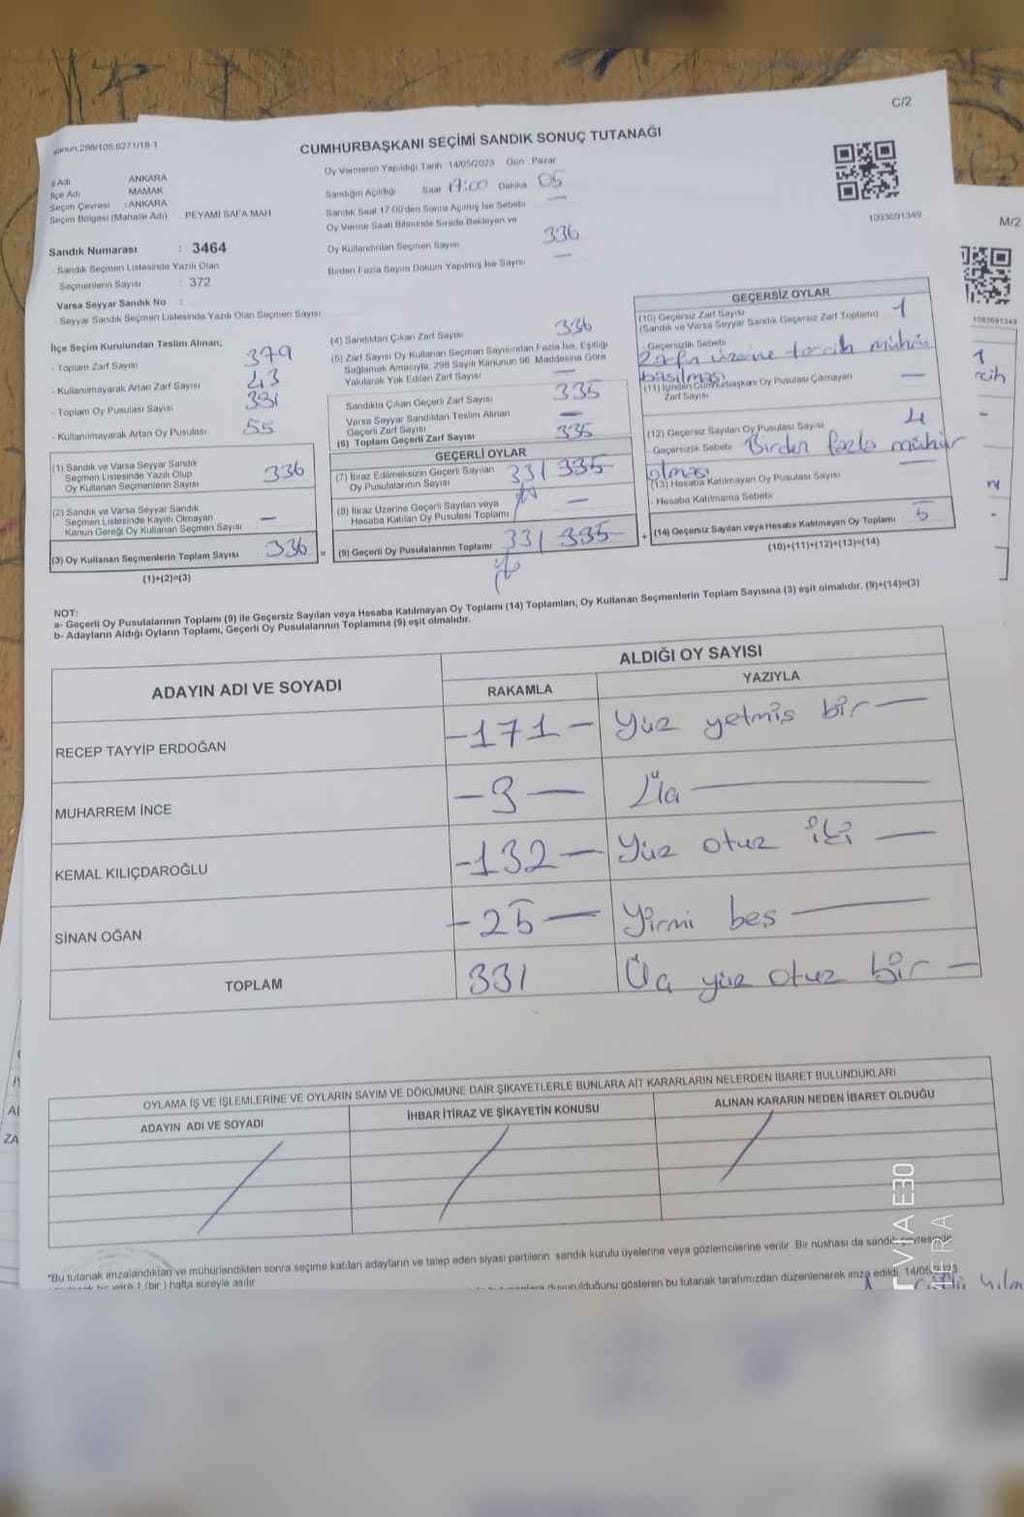 C/2
CUMHURBAŞKANI SEÇİMİ SANDIK SONUÇ TUTANAĞI
Oy Vermenin Yapıldığı Tarih 14/05/2023 Gün Pazar
ANKARA
İlçe Adı MAMAK
Seçim Çevresi : ANKARA
Seçim Bölgesi (Mahalle Adı) PEYAMİ SAFA MAH
Sandık Numarası : 3464
Sandık Seçmen Listesinde Yazılı Olan
Seçmenlerin Sayısı : 372
Varsa Seyyar Sandık No :
Seyyar Sandık Seçmen Listesinde Yazılı Olan Seçmen Sayısı
Sandığın Açıldığı Saat 17:00 Dakika 05
Sandık Saat 17.00'den Sonra Açılmış İse Sebebi —
Oy Verme Saati Bitiminde Sırada Bekleyen ve
Oy Kullandırılan Seçmen Sayısı 336
Birden Fazla Sayım Döküm Yapılmış İse Sayısı —
1093691349
M/2
1093691349
İlçe Seçim Kurulundan Teslim Alınan;
- Toplam Zarf Sayısı 379
- Kullanılmayarak Artan Zarf Sayısı 43
- Toplam Oy Pusulası Sayısı 391
- Kullanılmayarak Artan Oy Pusulası 55
(1) Sandık ve Varsa Seyyar Sandık
Seçmen Listesinde Yazılı Olup
Oy Kullanan Seçmenlerin Sayısı 336
(2) Sandık ve Varsa Seyyar Sandık
Seçmen Listesinde Kayıtlı Olmayan
Kanun Gereği Oy Kullanan Seçmen Sayısı —
(3) Oy Kullanan Seçmenlerin Toplam Sayısı 336 =
(1)+(2)=(3)
(4) Sandıktan Çıkan Zarf Sayısı 336
(5) Zarf Sayısı Oy Kullanan Seçmen Sayısından Fazla İse, Eşitliği
Sağlamak Amacıyla, 298 Sayılı Kanunun 98. Maddesine Göre
Yakılarak Yok Edilen Zarf Sayısı —
Sandıkta Çıkan Geçerli Zarf Sayısı 335
Varsa Seyyar Sandıktan Teslim Alınan
Geçerli Zarf Sayısı —
(6) Toplam Geçerli Zarf Sayısı 335
GEÇERLİ OYLAR
(7) İtiraz Edilmeksizin Geçerli Sayılan
Oy Pusulalarının Sayısı 331 335
(8) İtiraz Üzerine Geçerli Sayılan veya
Hesaba Katılan Oy Pusulası Toplamı —
(9) Geçerli Oy Pusulalarının Toplamı 331 335 +
GEÇERSİZ OYLAR
(10) Geçersiz Zarf Sayısı
(Sandık ve Varsa Seyyar Sandık Geçersiz Zarf Toplamı) 1
- Geçersizlik Sebebi
Zarfın üzerine tercih mühürü
basılması
(11) İçinden Cumhurbaşkanı Oy Pusulası Çıkmayan
Zarf Sayısı —
(12) Geçersiz Sayılan Oy Pusulası Sayısı 4
- Geçersizlik Sebebi Birden fazla mühür
olması
(13) Hesaba Katılmayan Oy Pusulası Sayısı —
- Hesaba Katılmama Sebebi
(14) Geçersiz Sayılan veya Hesaba Katılmayan Oy Toplamı 5
(10)+(11)+(12)+(13)=(14)
NOT:
a- Geçerli Oy Pusulalarının Toplamı (9) ile Geçersiz Sayılan veya Hesaba Katılmayan Oy Toplamı (14) Toplamları, Oy Kullanan Seçmenlerin Toplam Sayısına (3) eşit olmalıdır. (9)+(14)=(3)
b- Adayların Aldığı Oyların Toplamı, Geçerli Oy Pusulalarının Toplamına (9) eşit olmalıdır.
ADAYIN ADI VE SOYADI
ALDIĞI OY SAYISI
RAKAMLA YAZIYLA
RECEP TAYYİP ERDOĞAN -171- Yüz yetmiş bir —
MUHARREM İNCE -3- Üç —
KEMAL KILIÇDAROĞLU -132- Yüz otuz iki —
SİNAN OĞAN -25- Yirmi beş —
TOPLAM 331 Üç yüz otuz bir —
OYLAMA İŞ VE İŞLEMLERİNE VE OYLARIN SAYIM VE DÖKÜMÜNE DAİR ŞİKAYETLERLE BUNLARA AİT KARARLARIN NELERDEN İBARET BULUNDUKLARI
ADAYIN ADI VE SOYADI İHBAR İTİRAZ VE ŞİKAYETİN KONUSU ALINAN KARARIN NEDEN İBARET OLDUĞU
*Bu tutanak imzalandıktan ve mühürlendikten sonra seçime katılan adayların ve talep eden siyasi partilerin sandık kurulu üyelerine veya gözlemcilerine verilir. Bir nüshası da sandık çevresinde
1 (bir) hafta süreyle asılır
duyurulduğunu gösteren bu tutanak tarafımızdan düzenlenerek imza edildi. 14/05/2023